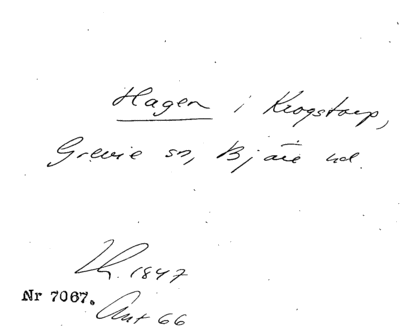 Hagen i Krogstorp,
Grevie sn, Bjäre hd.
Lh. 1847
Nr 7067.
Ant 66